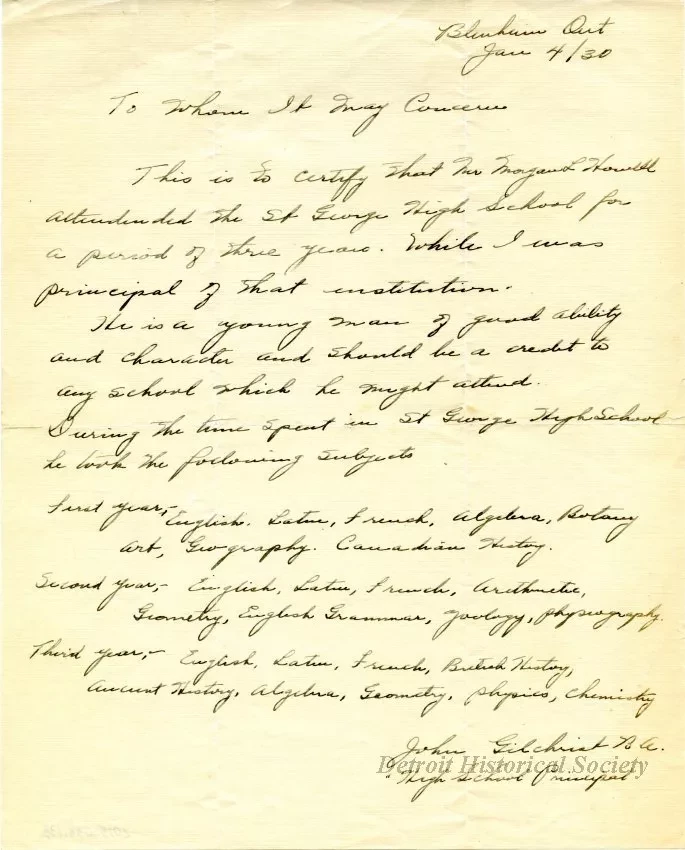 Blenheim Ont
Jan 4/30
To Whom It May Concern
This is to certify that Mr Morgan L Howell
attendended the St George High School for
a period of three years. While I was
principal of that institution.
He is a young man of good ability
and character and should be a credit to
any school which he might attend.
During the time spent in St George High School
he took the following subjects
First year,- English. Latin, French, Algebra, Botany
Art, Geography. Canadian History.
Second Year,- English, Latin, French, Arithmetic,
Geometry, English Grammar, Zoology, physiography.
Third year,- English, Latin, French, British History,
Ancient History, Algebra, Geometry, physics, Chemistry
John Gilchrist B.A.
Detroit Historical Society
"High School Principal"